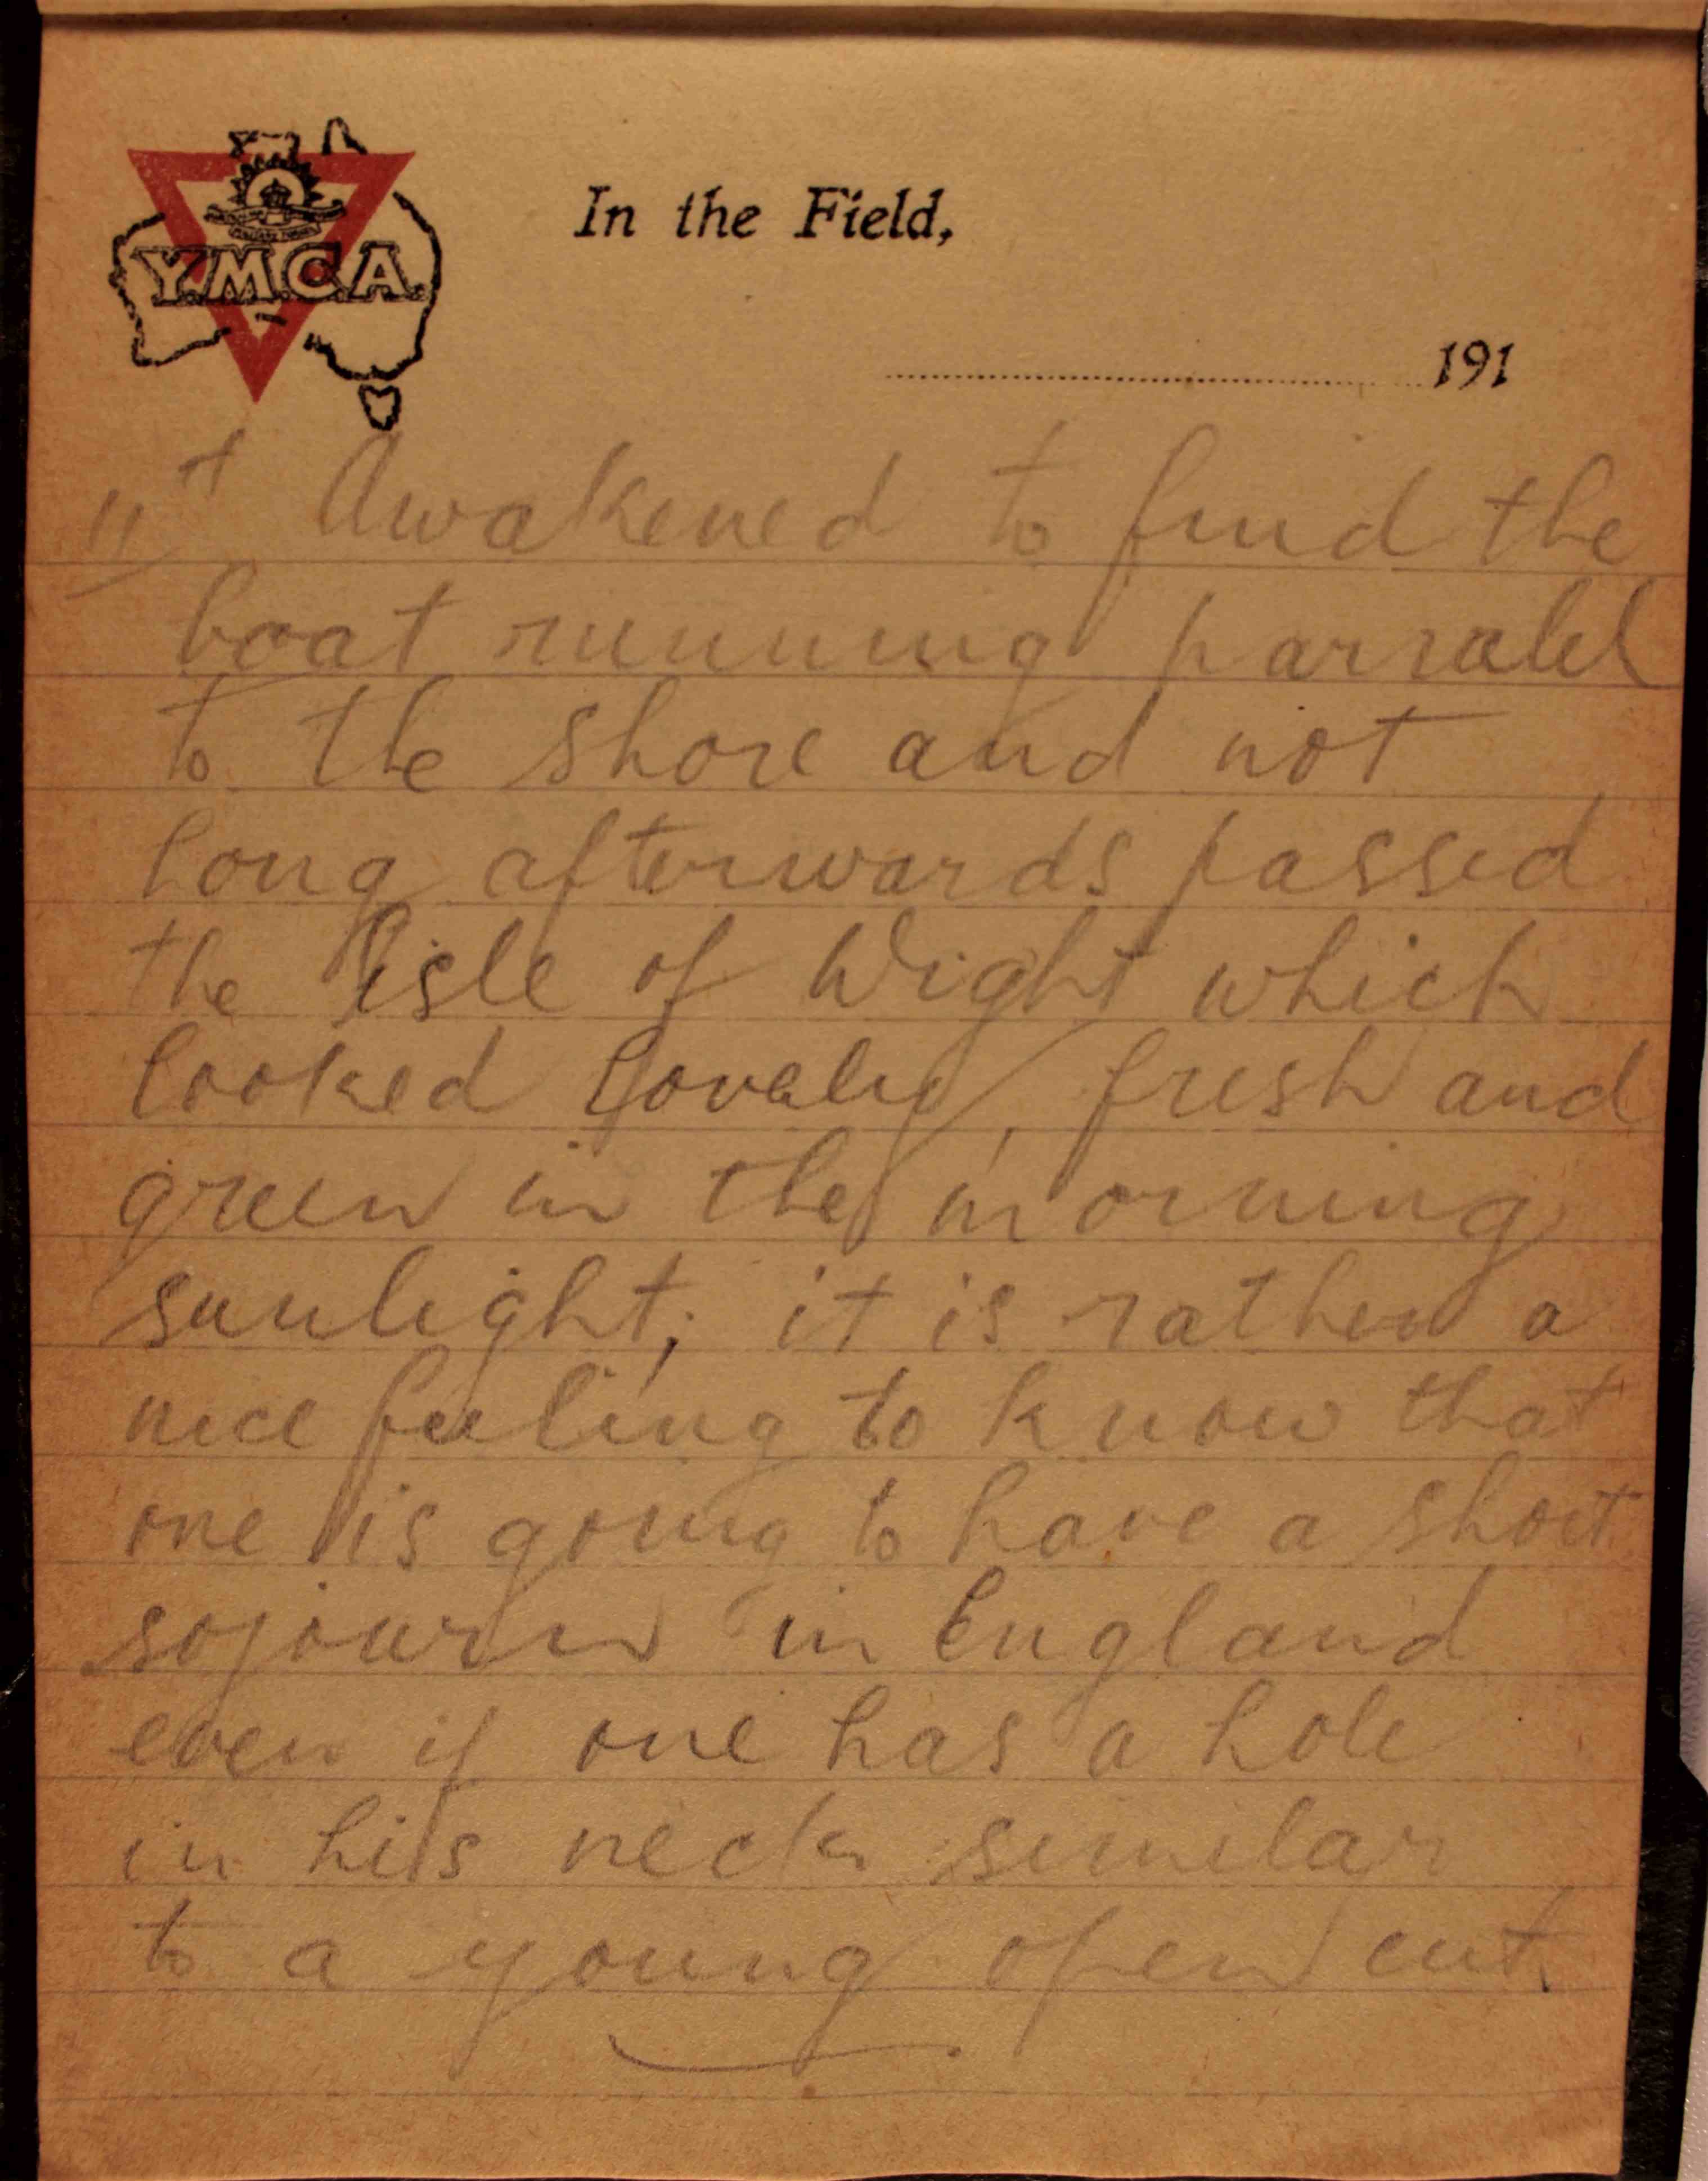 Y.M.C.A.
In the Field,
191
11 Awakened to find the
boat running parralel
to the shore and not
long afterwards passed
the Isle of Wight which
looked lovely, fresh and
green in the morning
sunlight; it is rather a
nice feeling to know that
one is going to have a short
sojourn in England
even if one has a hole
in his neck similar
to a young open cut.